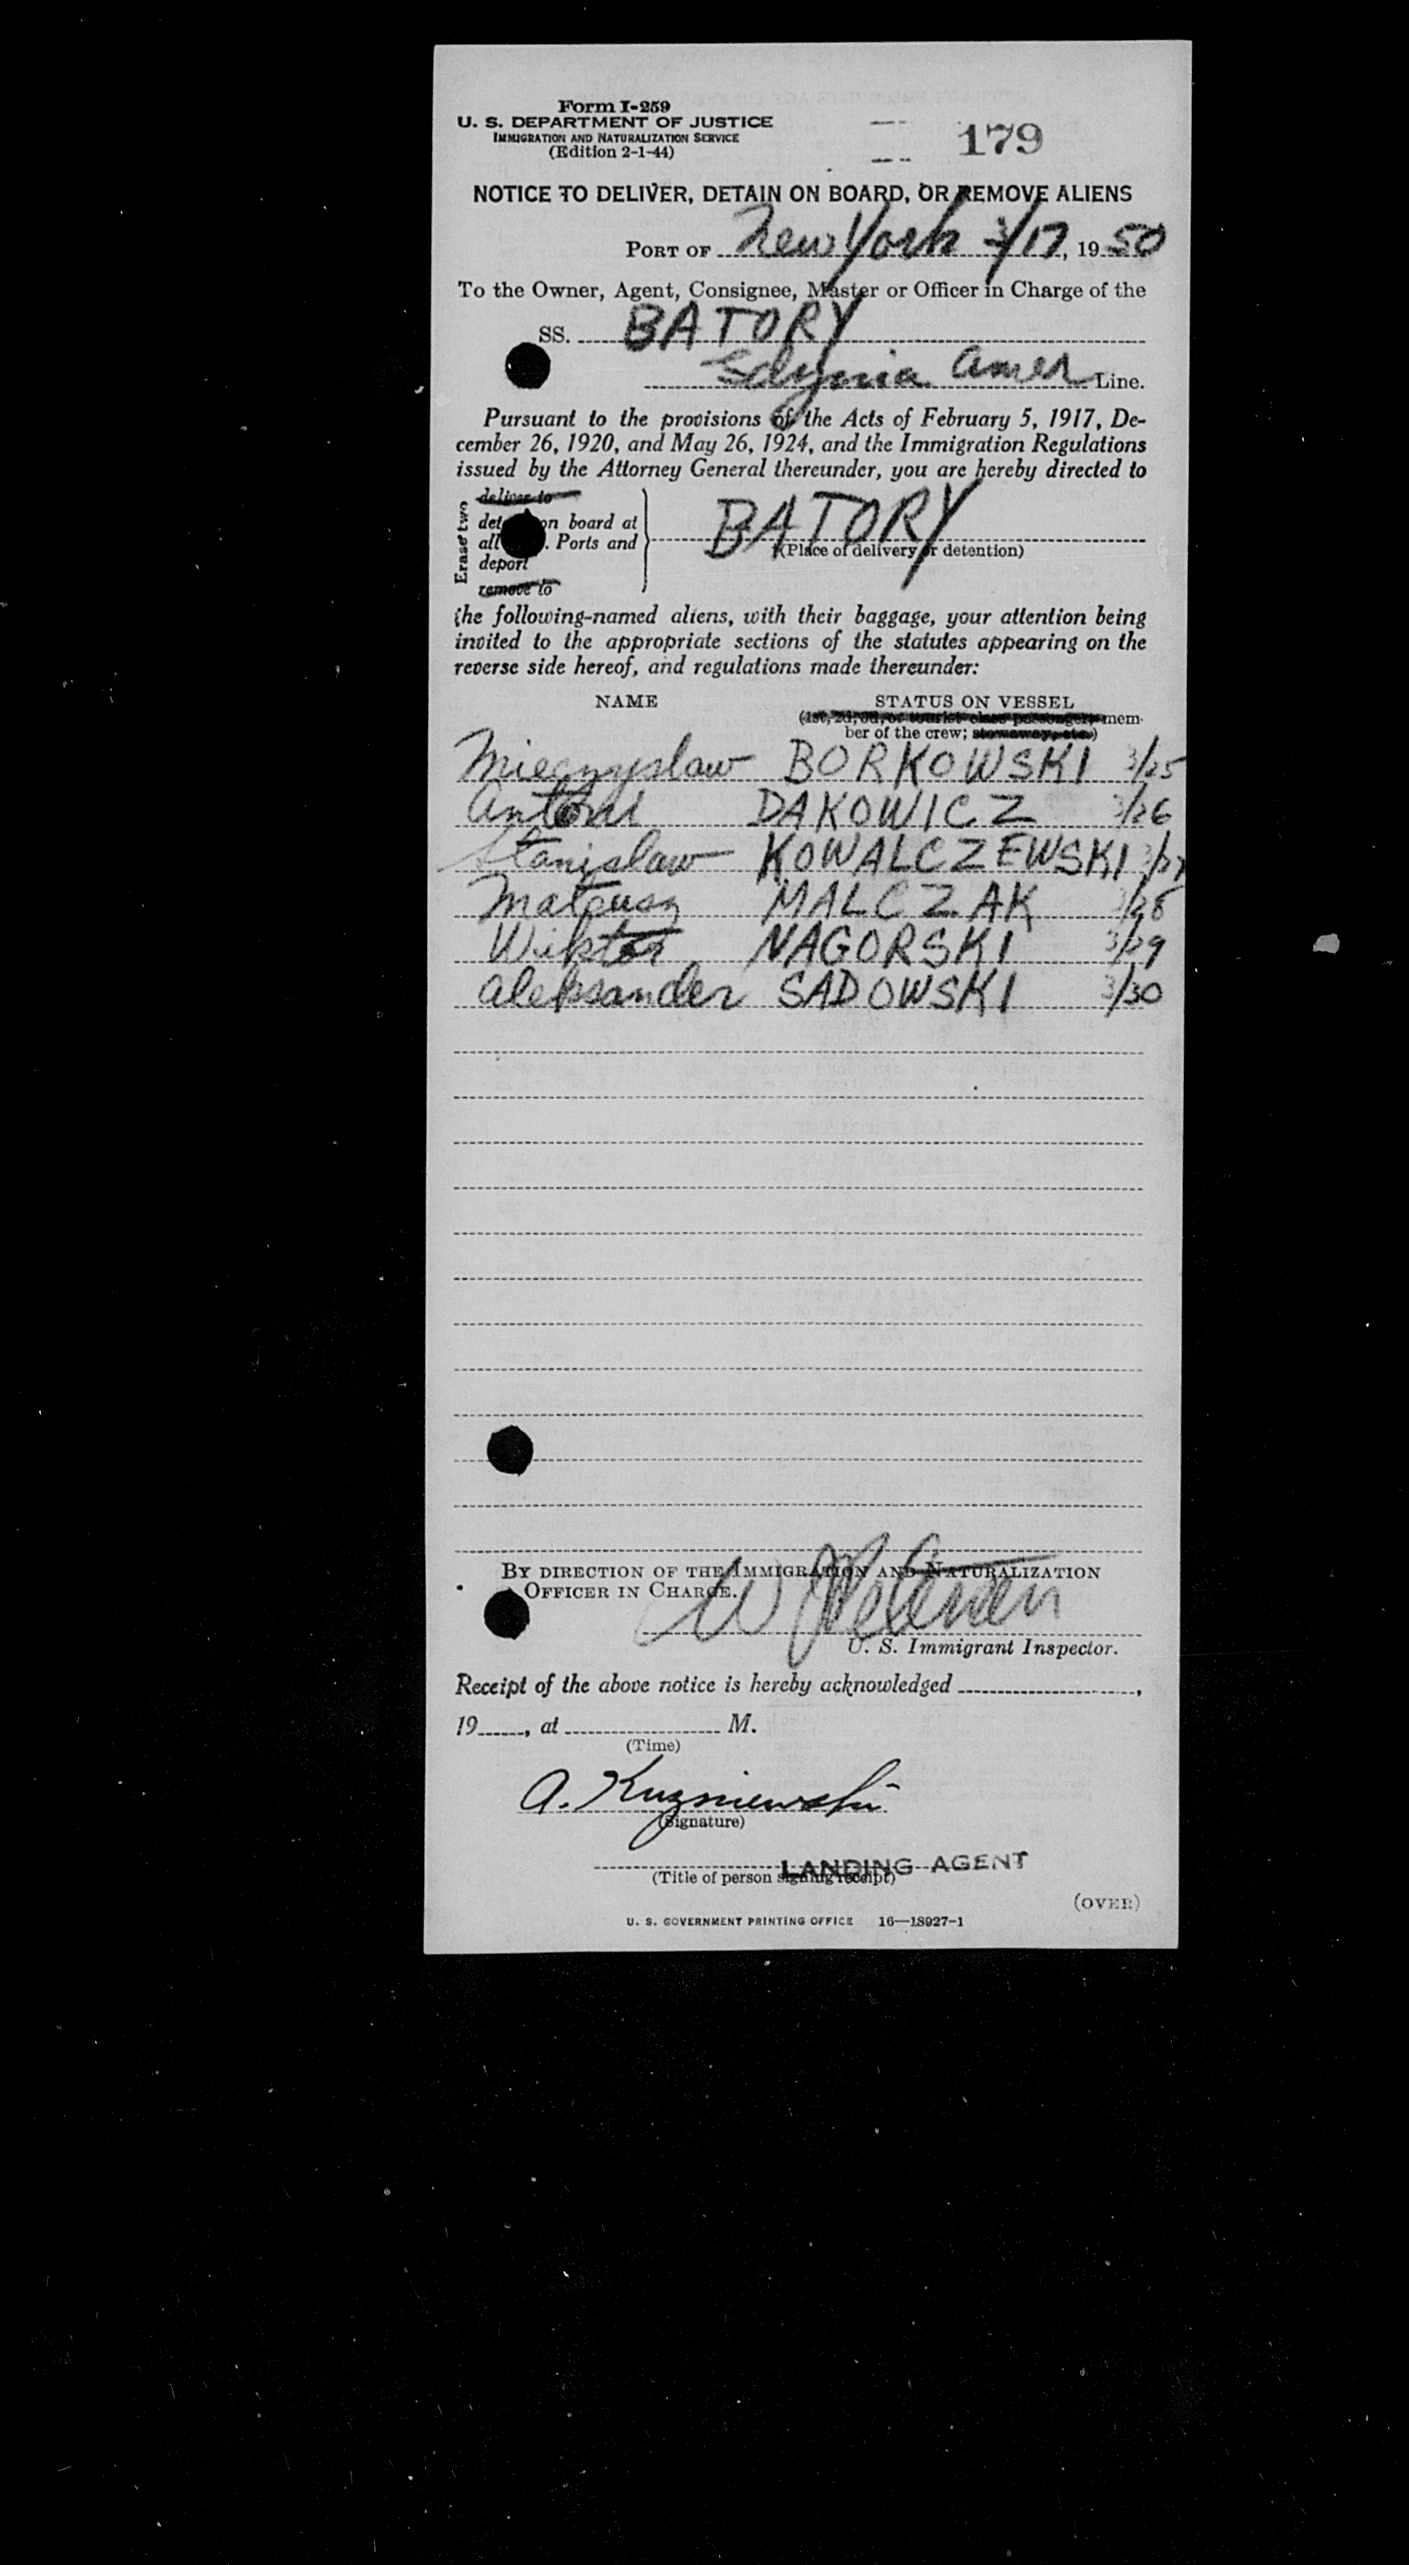 Form I-259
U. S. DEPARTMENT OF JUSTICE
IMMIGRATION AND NATURALIZATION SERVICE
(Edition 2-1-44)
179
NOTICE TO DELIVER, DETAIN ON BOARD, OR REMOVE ALIENS
PORT OF New York 3/17, 1950
To the Owner, Agent, Consignee, Master or Officer in Charge of the
SS. BATORY
Gdynia Amer Line.
Pursuant to the provisions of the Acts of February 5, 1917, De-
cember 26, 1920, and May 26, 1924, and the Immigration Regulations
issued by the Attorney General thereunder, you are hereby directed to
Erase two
deliver to
on board at
all Ports and
deport
remove to
BATORY
(Place of delivery or detention)
the following-named aliens, with their baggage, your attention being
invited to the appropriate sections of the statutes appearing on the
reverse side hereof, and regulations made thereunder:
NAME STATUS ON VESSEL
(1st, 2d, 3d, or tourist class passenger, mem-
ber of the crew; stowaway, etc.)
Mieczyslaw BORKOWSKI 3/25
Antoni DAKOWICZ 3/26
Stanislaw KOWALCZEWSKI 3/27
Mateusz MALCZAK 3/28
Wiktor NAGORSKI 3/29
Aleksander SADOWSKI 3/30
BY DIRECTION OF THE IMMIGRATION AND NATURALIZATION
OFFICER IN CHARGE.
U. S. Immigrant Inspector.
Receipt of the above notice is hereby acknowledged ,
19 , at M.
(Time)
A. Kuzniewski
(Signature)
LANDING AGENT
(Title of person signing receipt)
(OVER)
U. S. GOVERNMENT PRINTING OFFICE 16—18927-1